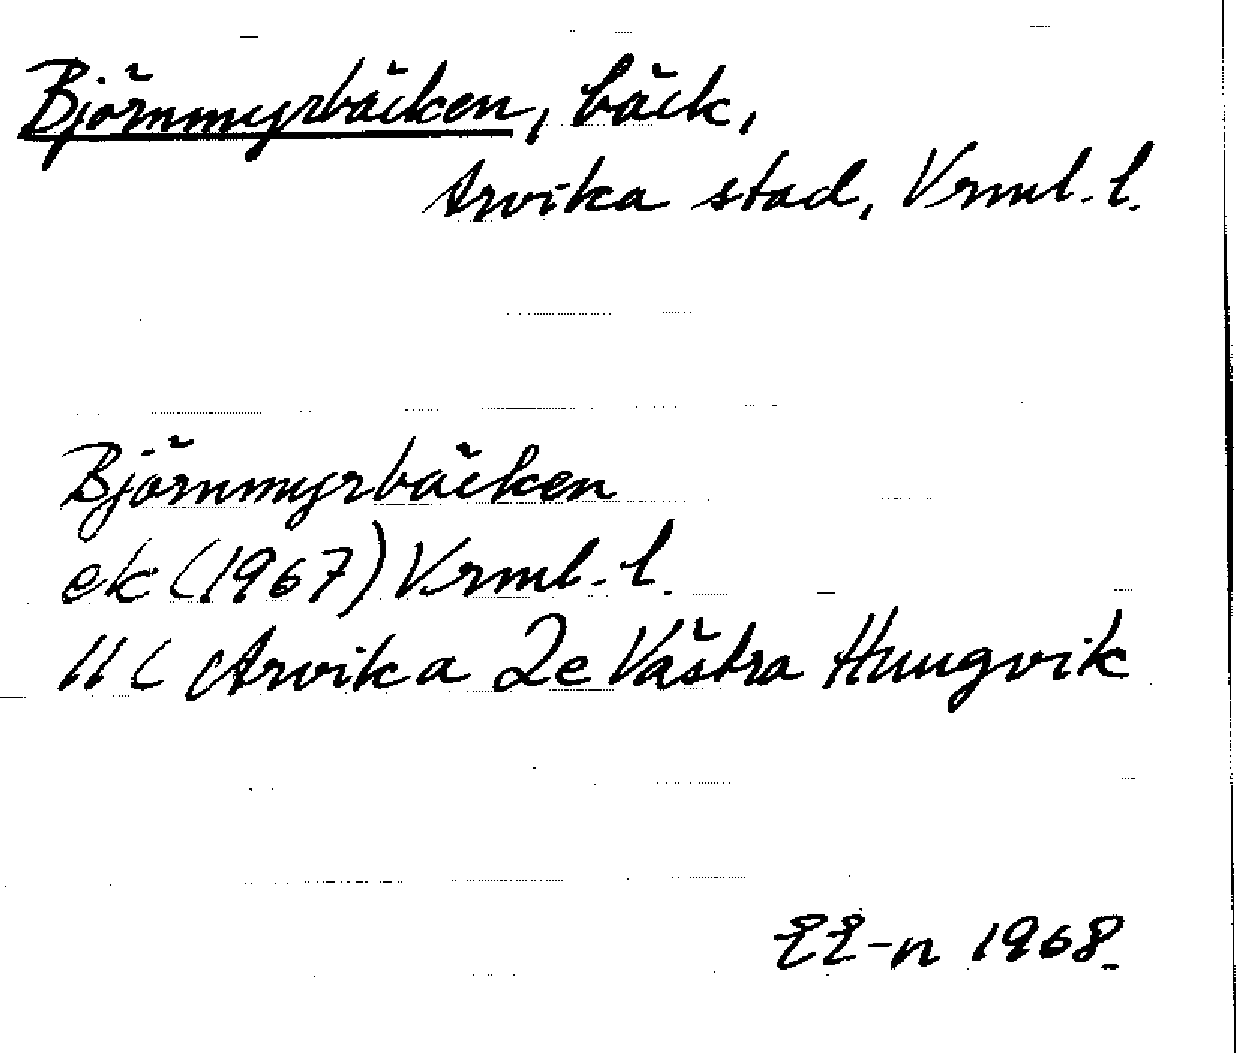 Björnmyrbäcken, bäck,
Arvika stad, Vrml. l.
Björnmyrbäcken
ek (1967) Vrml. l.
11 C Arvika 2e Västra Hungvik
EE-n 1968.